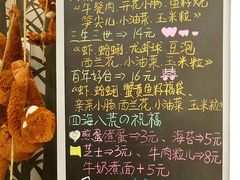 《牛筋肉、开花小肠、鱼籽烧
笋尖儿、小油菜、玉米粒》
三生三世⇒14元
《虾、蛤蜊、龙虾球、豆泡
西兰花、小油菜、玉米粒》
百年好合⇒16元
《虾、蛤蜊、蟹黄鱼籽福袋、
亲亲小肠、西兰花、小油菜、玉米粒》
四海八荒の祝福
煎蛋蛋⇒3元、海苔⇒5元
芝士⇒3元、牛肉粒儿⇒8元
牛奶煮面+5元